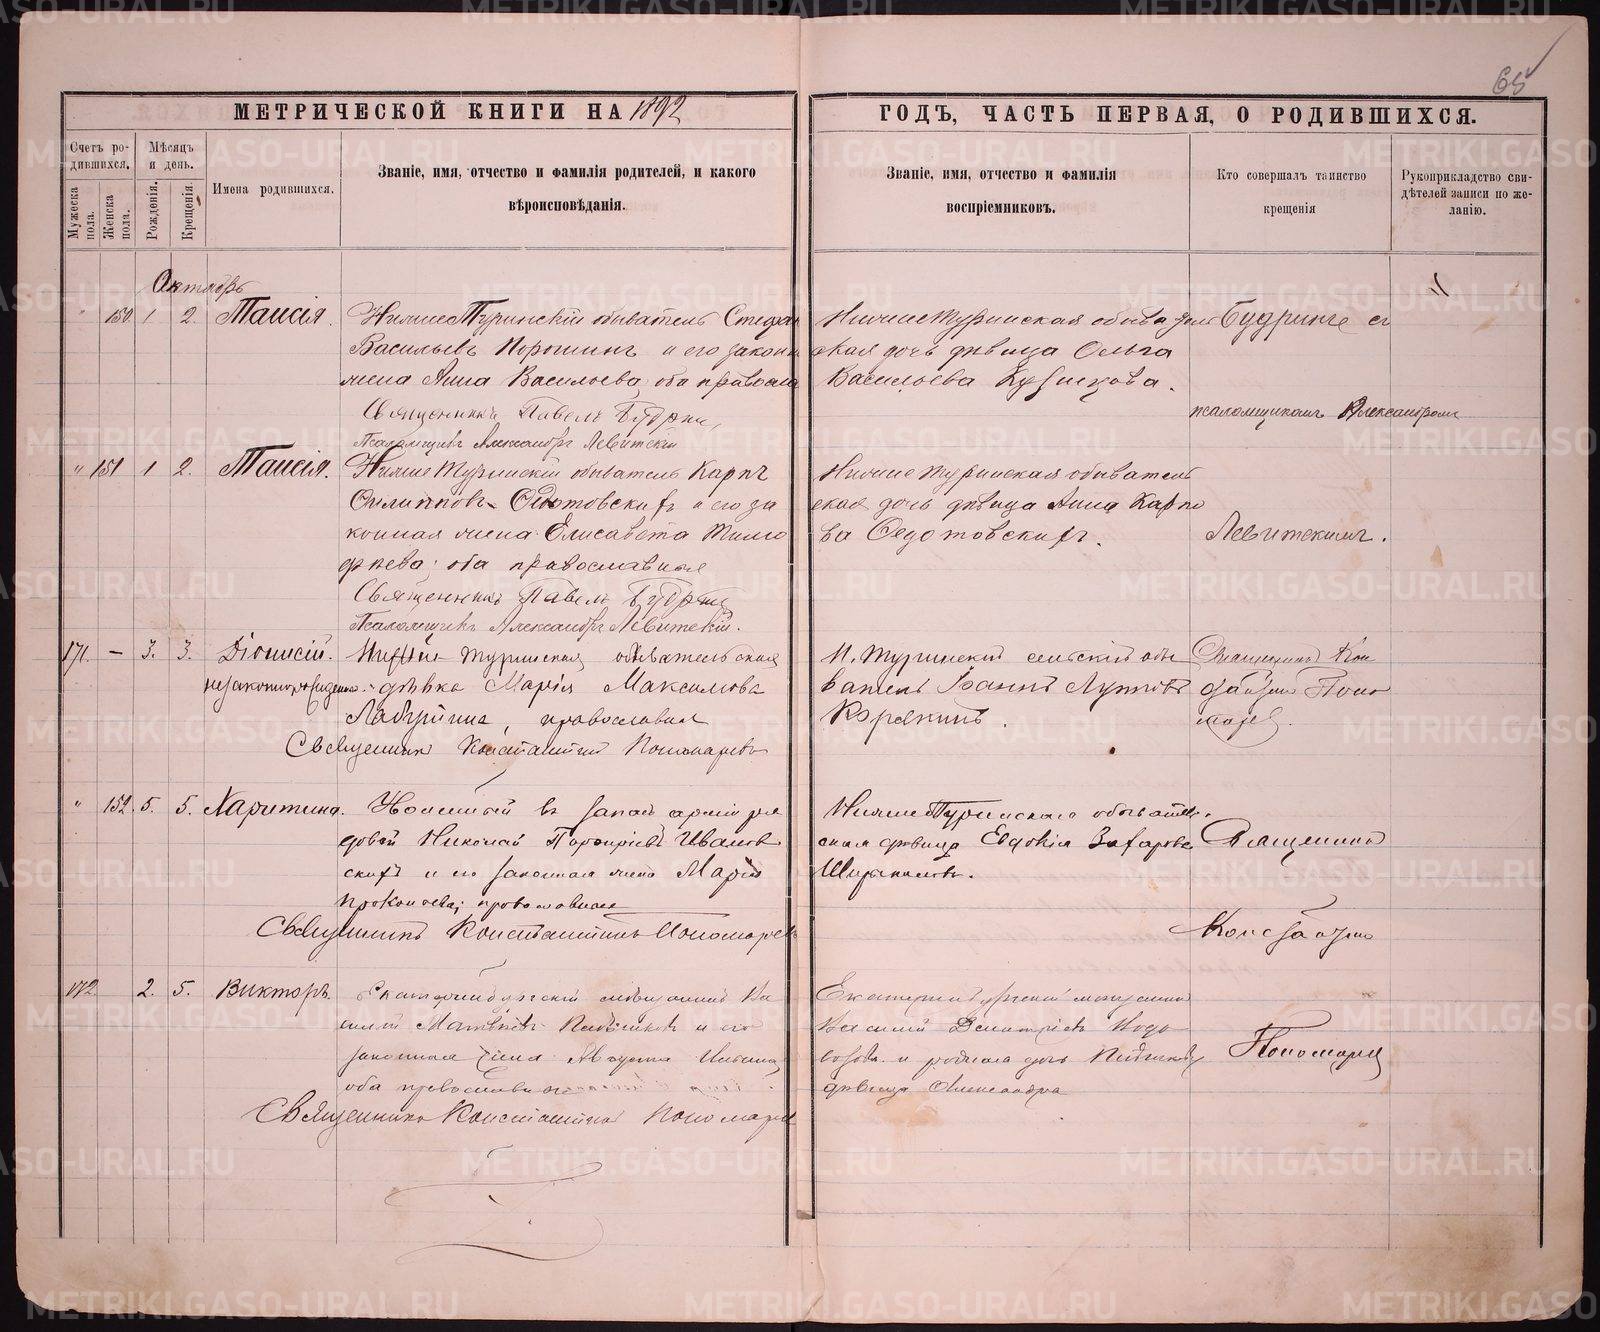 65
МЕТРИЧЕСКОЙ КНИГИ НА 1892
ГОДЪ, ЧАСТЬ ПЕРВАЯ, О РОДИВШИХСЯ.
Счетъ родившихся.
Мужеска пола.
Женска пола.
Мѣсяцъ и день.
Рожденія.
Крещенія.
Имена родившихся.
Званіе, имя, отчество и фамилія родителей, и какого
вѣроисповѣданія.
Званіе, имя, отчество и фамилія
воспріемниковъ.
Кто совершалъ таинство
крещенія
Рукоприкладство сви-
дѣтелей записи по же-
ланію.
Октябрь
" 150. 1 2 Таисія.
НижнеТуринскій обыватель Стефан
Васильевъ Порошинъ и его законн
жена Анна Васильева, оба правосла
Священникъ Павелъ Будрин,
Псаломщикъ Александръ Левитскій
НижнеТуринская обыватель
ская дочь дѣвица Ольга
Васильева
Будринъ съ
псаломщикомъ Александром
Левитскимъ.
" 151 1 2. Таисія.
НижнеТуринскій обыватель Карпъ
Филипповъ Федотовскихъ и его за
конная жена Елисавета Тимо
фѣева; оба православные
Священникъ Павелъ Будринъ
Псаломщикъ Александръ Левитскій.
НижнеТуринская обыватель
ская дочь дѣвица Анна Карпо
ва Федотовскихъ.
171. — 3. 3. Діонисій.
незаконнорожденный
Нижне-Туринская обывательская
дѣвка Марія Максимова
православная
Священникъ Константинъ Пономаревъ
Н. Туринскій сельскій обы
ватель Іоаннъ
Корякинъ.
Священникъ Кон
стантинъ Поно
маревъ.
" 152. 5. 5. Харитина.
въ запасъ арміи ря
довой Николай Порфирьевъ Иванов
скихъ и его законная жена Марія
Прокопьева; православные
Священникъ Константинъ Пономарев
НижнеТуринскаго обыватель
ская дѣвица Евдокія Захарова
Священникъ
Константинъ
Пономарев
172 2. 5. Викторъ.
Екатеринбургскій мѣщанинъ Ва
силій Матвѣевъ и его
законная жена Августа
оба православные
Священникъ Константинъ Пономаре
Екатеринбургскій мѣщанинъ
Василій Димитріевъ
и родная дочь
дѣвица Александра
METRIKI.GASO-URAL.RU